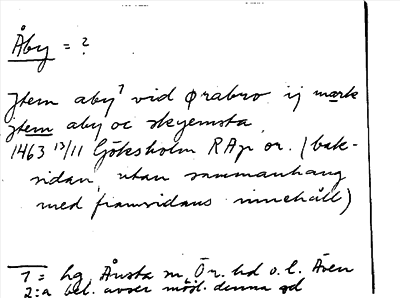 Åby = ?
Jtem aby¹ vid Ørabro ij mark
Jtem aby oc skyemsta
1463 13/11 Göksholm RAp or. (bak-
sidan, utan sammanhang
med framsidans innehåll)
1 = hg, Ånsta sn, Ör. hd o. l. Även
2:a bel. avser möjl. denna gd